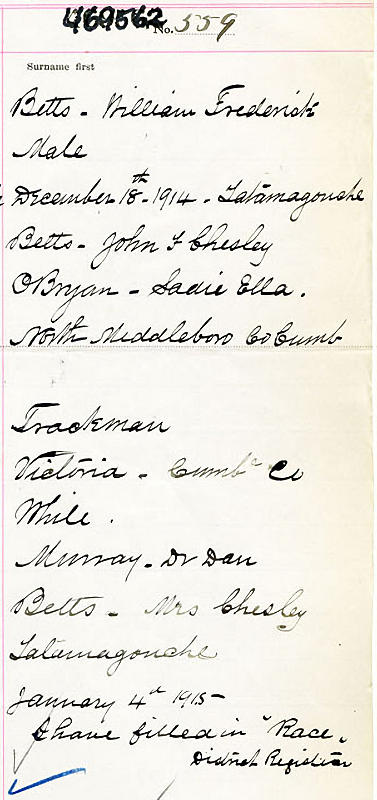 469562
No. 559
Surname first
Betts - William Frederick
Male
December 18th - 1914 - Tatamagouche
Betts - John F Chesley
OBryan - Sadie Ella.
North Middleboro Co Cumb
Trackman
Victoria - Cumb Co
White.
Murray - Dr Dan
Betts - Mrs Chesley
Tatamagouche
January 4th 1915 -
I have filled in "Race"
District Registrar